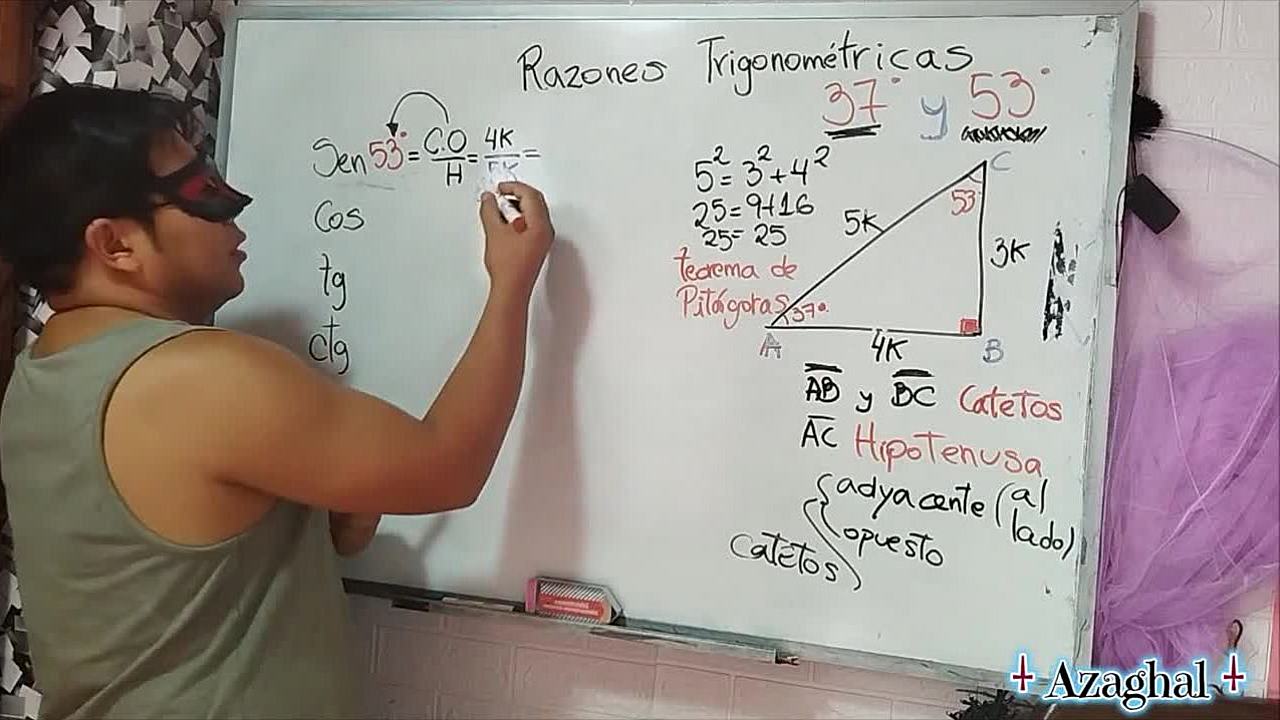 Razones Trigonométricas
37° y 53°
Sen 53° = C.O/H = 4K/5K =
Cos
tg
ctg
5² = 3² + 4²
25 = 9+16
25 = 25
teorema de
Pitágoras
C
53
5K
3K
37°
A
4K
B
AB y BC Catetos
AC Hipotenusa
Catetos
adyacente (al
lado)
opuesto
Azaghal